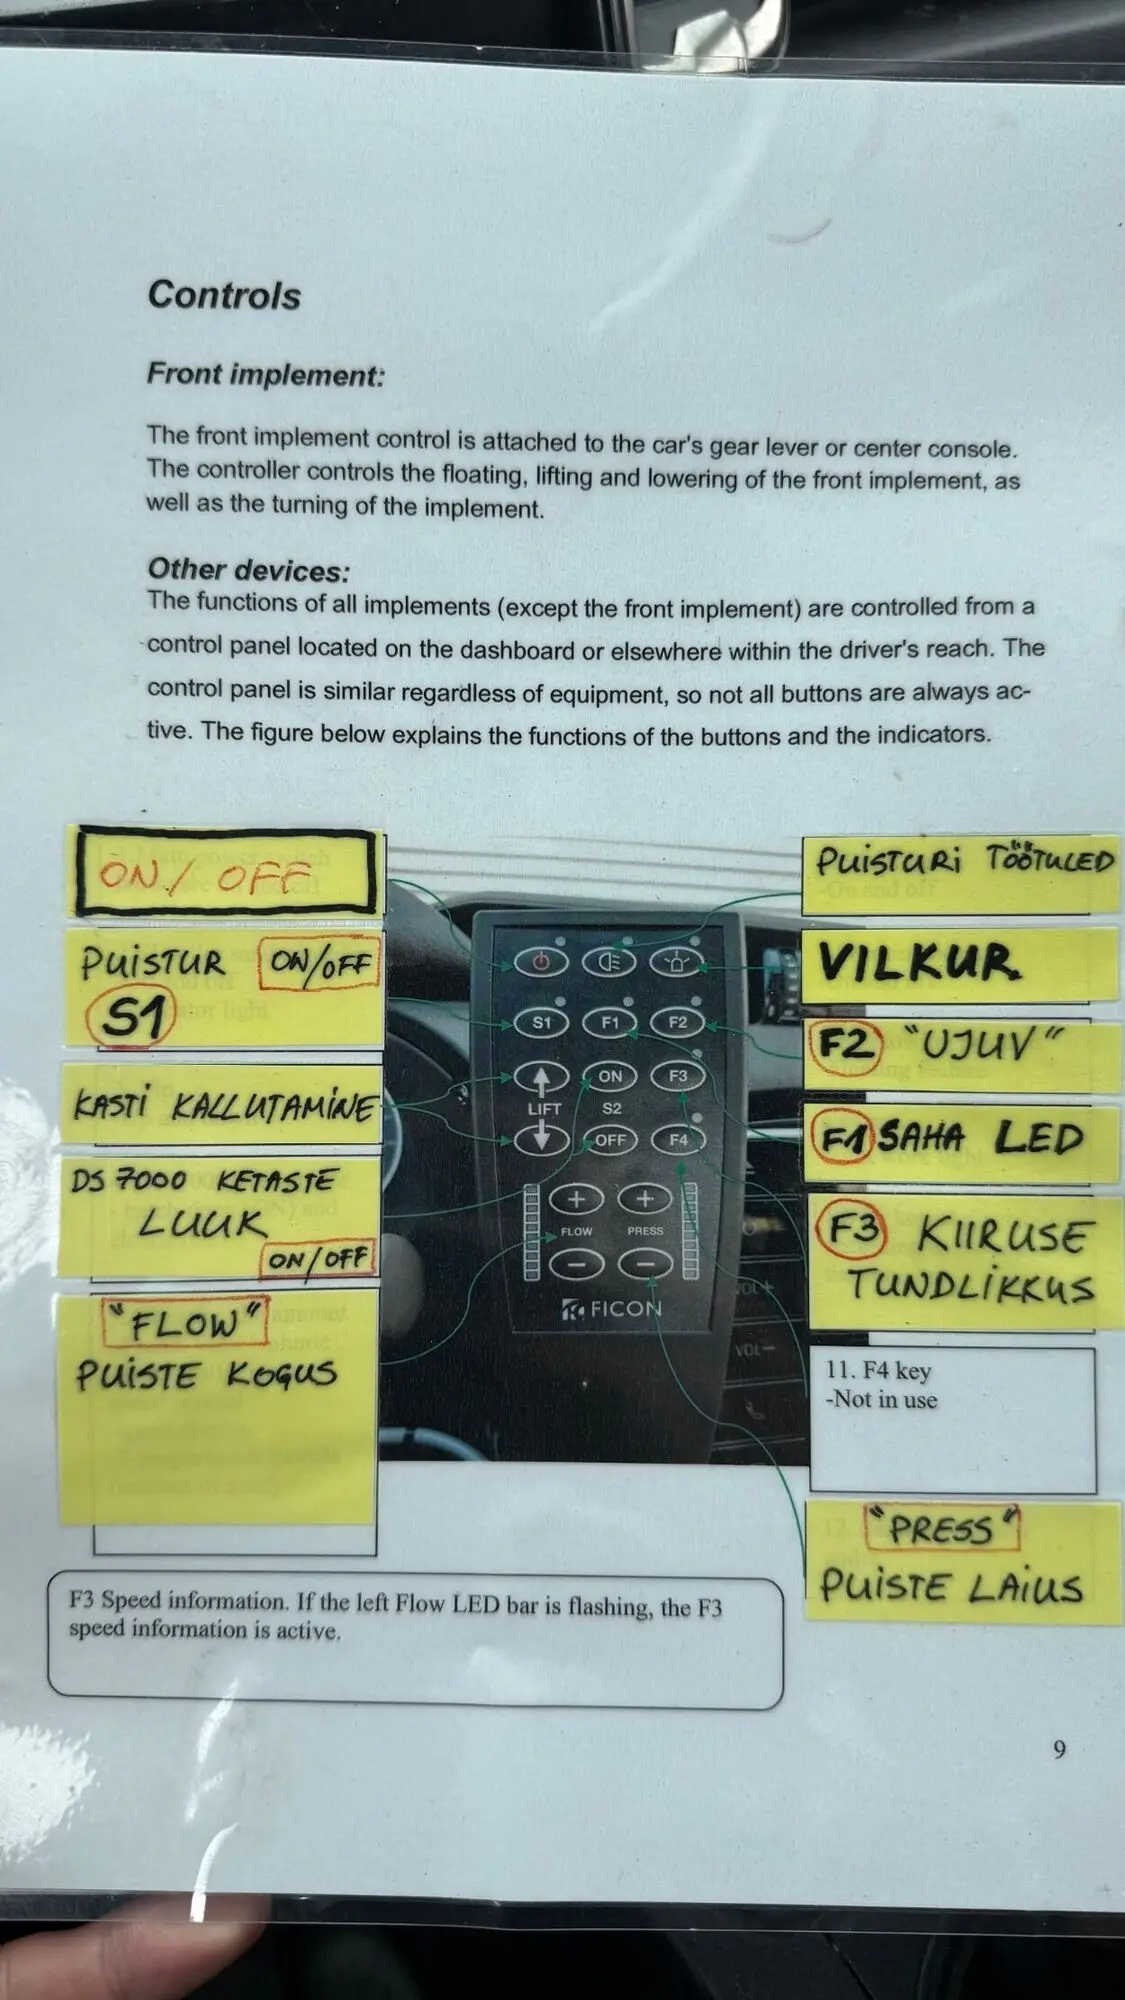 Controls
Front implement:
The front implement control is attached to the car's gear lever or center console.
The controller controls the floating, lifting and lowering of the front implement, as
well as the turning of the implement.
Other devices:
The functions of all implements (except the front implement) are controlled from a
control panel located on the dashboard or elsewhere within the driver's reach. The
control panel is similar regardless of equipment, so not all buttons are always ac-
tive. The figure below explains the functions of the buttons and the indicators.
ON / OFF
PUISTUR ON/OFF
S1
KASTI KALLUTAMINE
DS 7000 KETASTE
LUUK
ON/OFF
"FLOW"
PUISTE KOGUS
S1 F1 F2
ON F3
LIFT S2
OFF F4
+ +
FLOW PRESS
- -
FICON
VOL +
VOL -
PUISTURI TÖÖTULED
VILKUR
F2 "UJUV"
F1 SAHA LED
F3 KIIRUSE
TUNDLIKKUS
11. F4 key
-Not in use
"PRESS"
PUISTE LAIUS
F3 Speed information. If the left Flow LED bar is flashing, the F3
speed information is active.
9